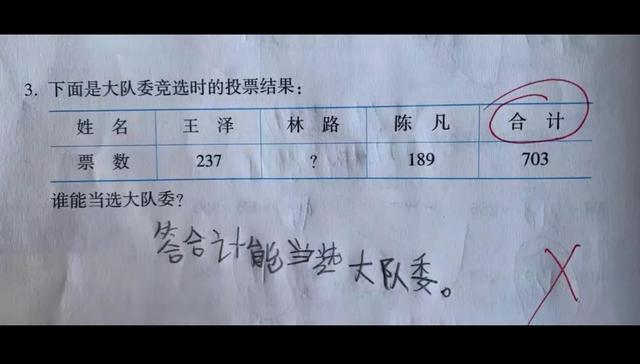 3. 下面是大队委竞选时的投票结果：
姓 名 王 泽 林 路 陈 凡 合 计
票 数 237 ? 189 703
谁能当选大队委？
答合计能当选大队委。